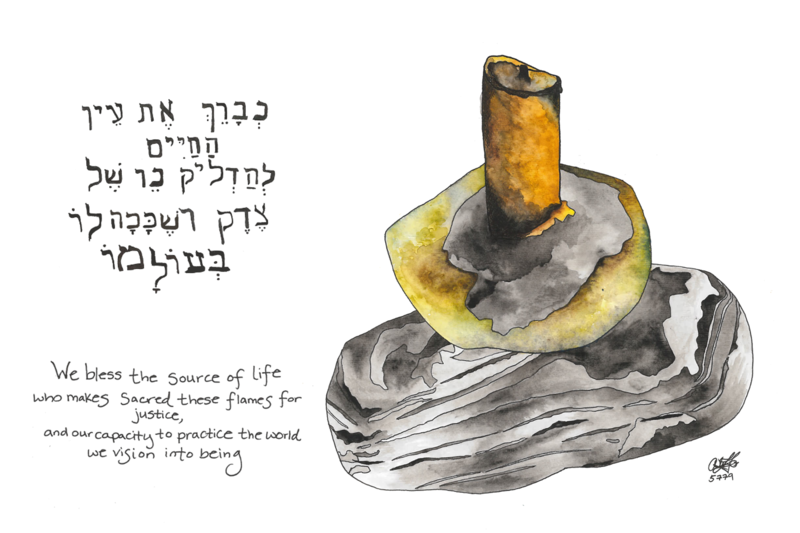 נְבָרֵךְ אֶת עֵין
הָחַיִּים
לְהַדְלִיק נֵר שֶׁל
צֶדֶק ושֶׁכָּכָה לוֹ
בְּעוֹלָמוֹ
We bless the source of life
who makes sacred these flames for
justice,
and our capacity to practice the world
we vision into being
5779